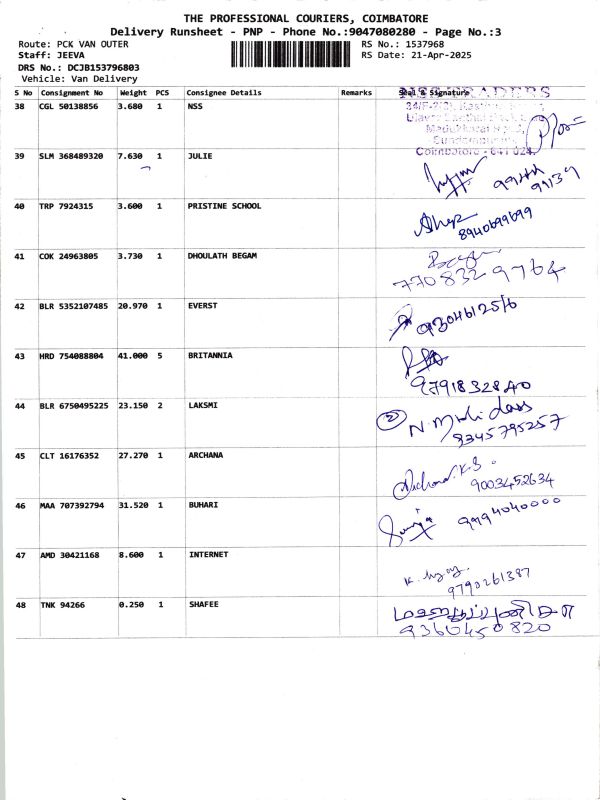 THE PROFESSIONAL COURIERS, COIMBATORE
Delivery Runsheet - PNP - Phone No.:9047080280 - Page No.:3
Route: PCK VAN OUTER RS No.: 1537968
Staff: JEEVA RS Date: 21-Apr-2025
DRS No.: DCJB153796803
Vehicle: Van Delivery
S No Consignment No Weight PCS Consignee Details Remarks Seal & Signature
38 CGL 50138856 3.680 1 NSS
Coimbatore - 641 024.
39 SLM 368489320 7.630 1 JULIE
99139
40 TRP 7924315 3.600 1 PRISTINE SCHOOL
8940699699
41 COK 24963805 3.730 1 DHOULATH BEGAM
7708329764
42 BLR 5352107485 20.970 1 EVERST
9304612516
43 HRD 754088804 41.000 5 BRITANNIA
9791832840
44 BLR 6750495225 23.150 2 LAKSMI
2 N. Murli dass
8345795257
45 CLT 16176352 27.270 1 ARCHANA
Archana.K.S.
9003452634
46 MAA 707392794 31.520 1 BUHARI
9994040000
47 AMD 30421168 8.600 1 INTERNET
9790261387
48 TNK 94266 0.250 1 SHAFEE
9360450820